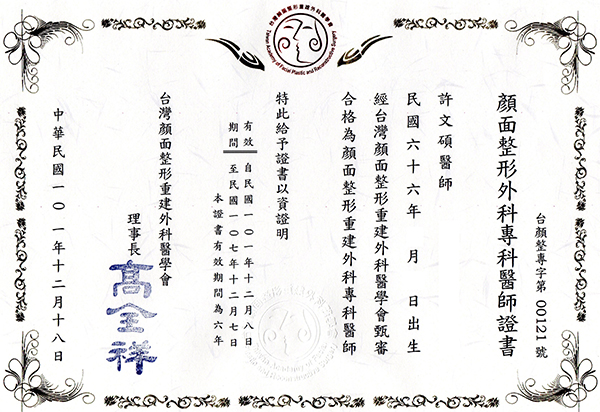 台灣顏面整形重建外科醫學會
Taiwan Academy of Facial Plastic and Reconstructive Surgery
台顏整專字第 00121 號
顏面整形外科專科醫師證書
許文碩醫師
民國六十六年 月 日出生
經台灣顏面整形重建外科醫學會甄審
合格為顏面整形重建外科專科醫師
特此給予證書以資證明
有效期間
自民國一〇一年十二月八日
至民國一〇七年十二月七日
本證書有效期間為六年
台灣顏面整形重建外科醫學會
理事長
高全祥
中華民國一〇一年十二月十八日